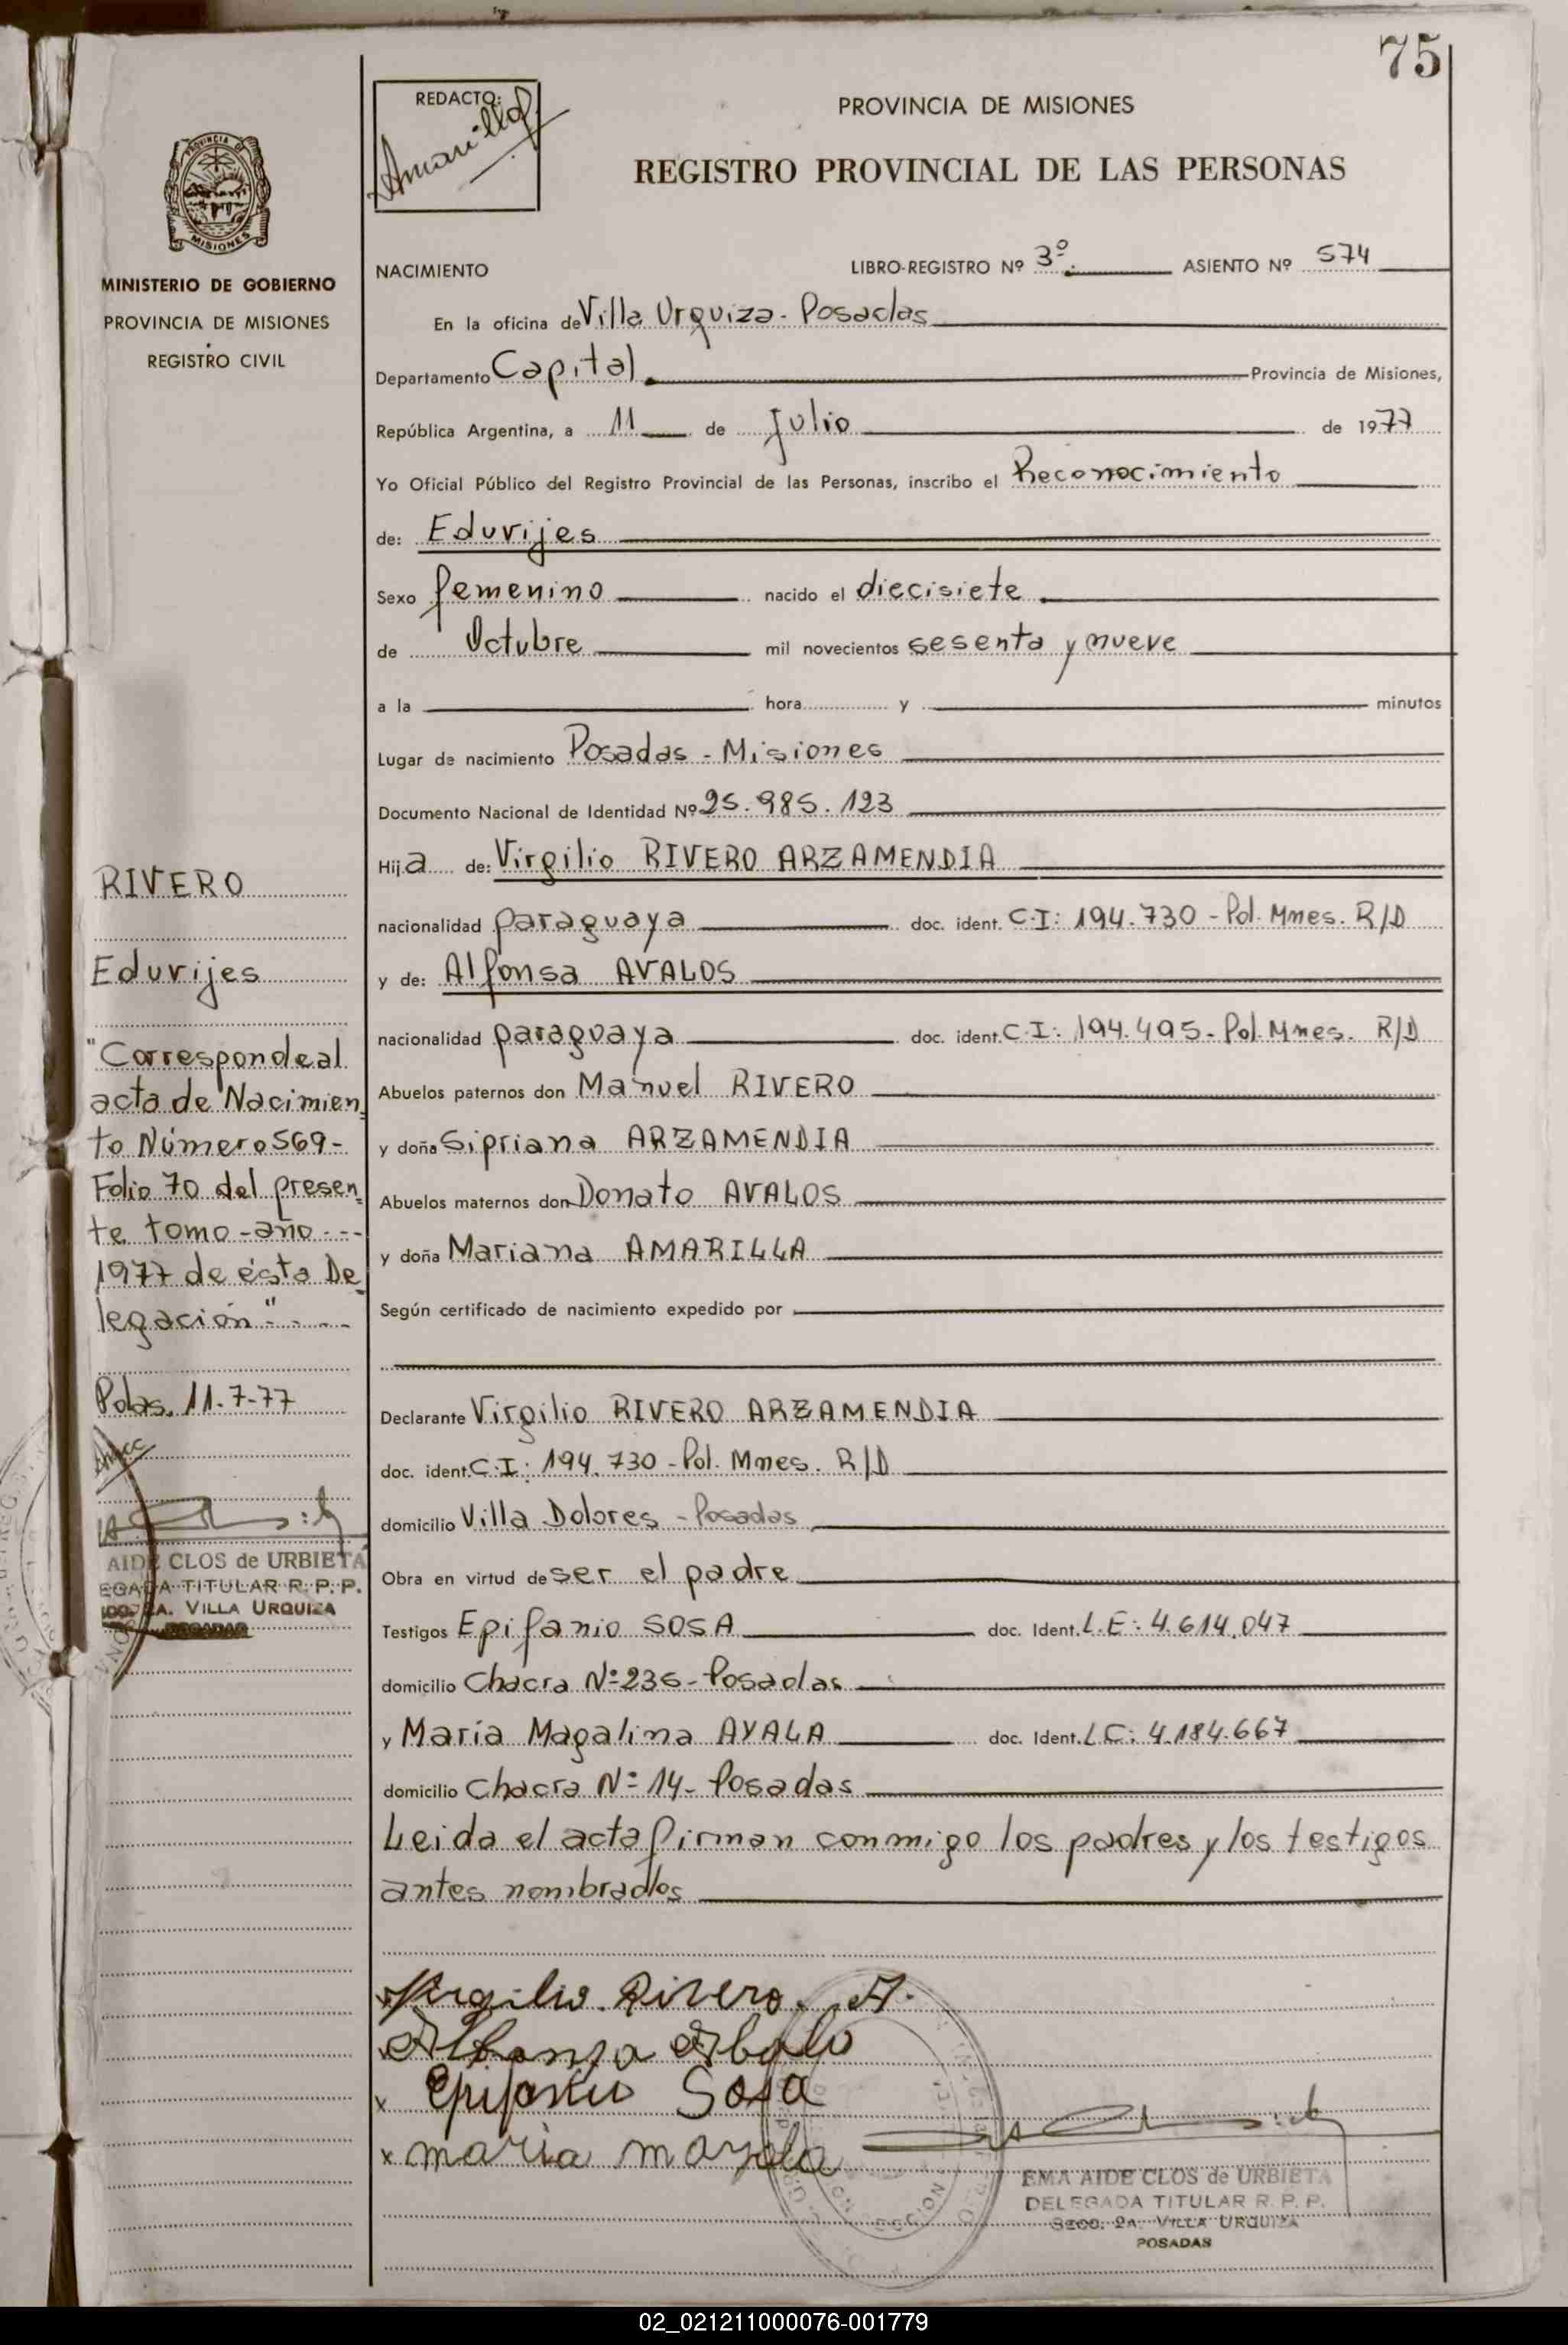 75
REDACTO:
Amarilla
PROVINCIA DE MISIONES
REGISTRO PROVINCIAL DE LAS PERSONAS
PROVINCIA DE
MISIONES
MINISTERIO DE GOBIERNO
PROVINCIA DE MISIONES
REGISTRO CIVIL
NACIMIENTO LIBRO-REGISTRO Nº 3º. ASIENTO Nº 574
En la oficina de Villa Urquiza - Posadas
Departamento Capital Provincia de Misiones,
República Argentina, a 11 de Julio de 1977
Yo Oficial Público del Registro Provincial de las Personas, inscribo el Reconocimiento
de: Eduvijes
Sexo femenino nacido el diecisiete
de Octubre mil novecientos sesenta y nueve
a la hora y minutos
Lugar de nacimiento Posadas - Misiones
Documento Nacional de Identidad Nº 25.985.123
Hija de: Virgilio RIVERO ARZAMENDIA
nacionalidad paraguaya doc. ident. C.I: 194.730 - Pol. Mnes. R/D
y de: Alfonsa AVALOS
nacionalidad paraguaya doc. ident. C.I: 194.495 - Pol. Mnes. R/D
Abuelos paternos don Manuel RIVERO
y doña Sipriana ARZAMENDIA
Abuelos maternos don Donato AVALOS
y doña Mariana AMARILLA
Según certificado de nacimiento expedido por
Declarante Virgilio RIVERO ARZAMENDIA
doc. ident. C.I: 194.730 - Pol. Mnes. R/D
domicilio Villa Dolores - Posadas
Obra en virtud de ser el padre
Testigos Epifanio SOSA doc. Ident. L.E: 4.614.047
domicilio Chacra Nº 236 - Posadas
y María Magalina AYALA doc. Ident. LC: 4.184.667
domicilio Chacra Nº 14 - Posadas
Leida el acta firman conmigo los padres y los testigos
antes nombrados
RIVERO
Eduvijes
"Corresponde al
acta de Nacimien
to Número 569-
Folio 70 del presen
te tomo - año ---
1977 de ésta De
legación" ---
Pdas. 11-7-77
AIDE CLOS de URBIETA
EGADA TITULAR R. P. P.
2A. VILLA URQUIZA
POSADAS
x Virgilio Rivero. A.
x Alfonsa Abalo
x Epifanio Sosa
x maria m ayala
EMA AIDE CLOS de URBIETA
DELEGADA TITULAR R. P. P.
SECC. 2A. VILLA URQUIZA
POSADAS
02_021211000076-001779